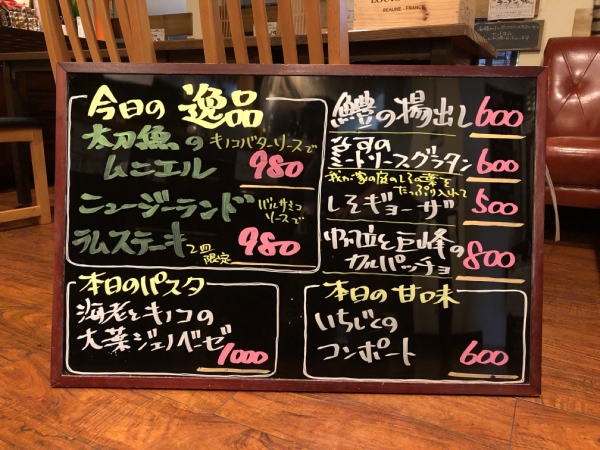 今日の 逸品
太刀魚の キノコバターソースで
ムニエル 980
ニュージーランド バルサミコ
ソースで
ラムステーキ 2皿
限定 980
本日のパスタ
海老とキノコの
大葉ジェノベーゼ 1000
鱧の揚出し 600
なすの
ミートソースグラタン 600
我が家の庭のしその葉を
たっぷり入れて
しそギョーザ 500
帆立と巨峰の
カルパッチョ 800
本日の甘味
いちじくの
コンポート 600
BEAUNE - FRANCE